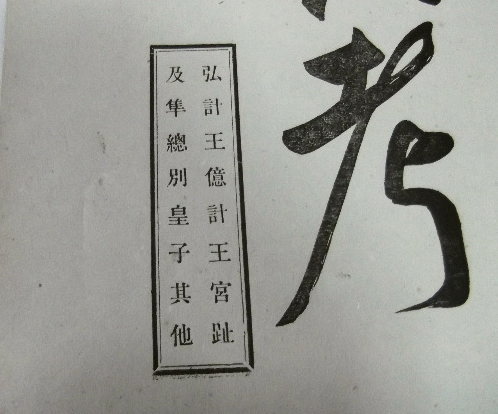 考
弘計王億計王宮趾
及隼總別皇子其他